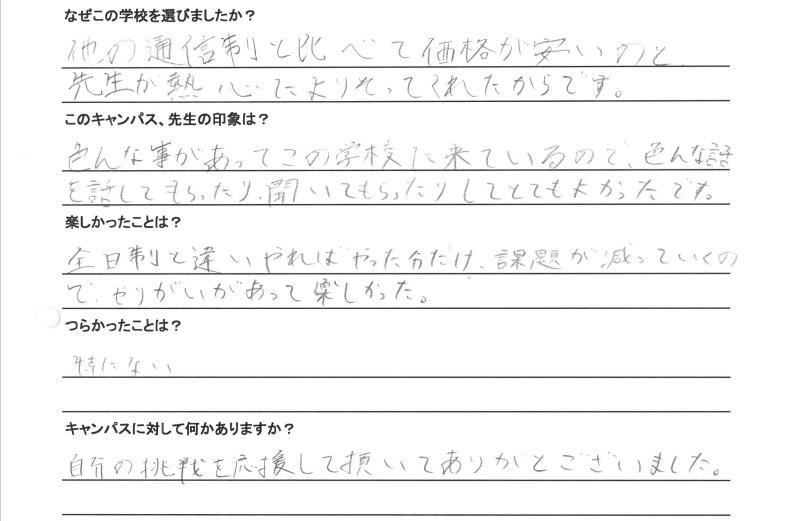 なぜこの学校を選びましたか？
他の通信制と比べて価格が安いのと、
先生が熱心によりそってくれたからです。
このキャンパス、先生の印象は？
色んな事があってこの学校に来ているので、色んな話
を話してもらったり、聞いてもらったりしてとてもよかったです。
楽しかったことは？
全日制と違いやればやった分だけ、課題が減っていくの
で、やりがいがあって楽しかった。
つらかったことは？
特にない
キャンパスに対して何かありますか？
自分の挑戦を応援して頂いてありがとございました。